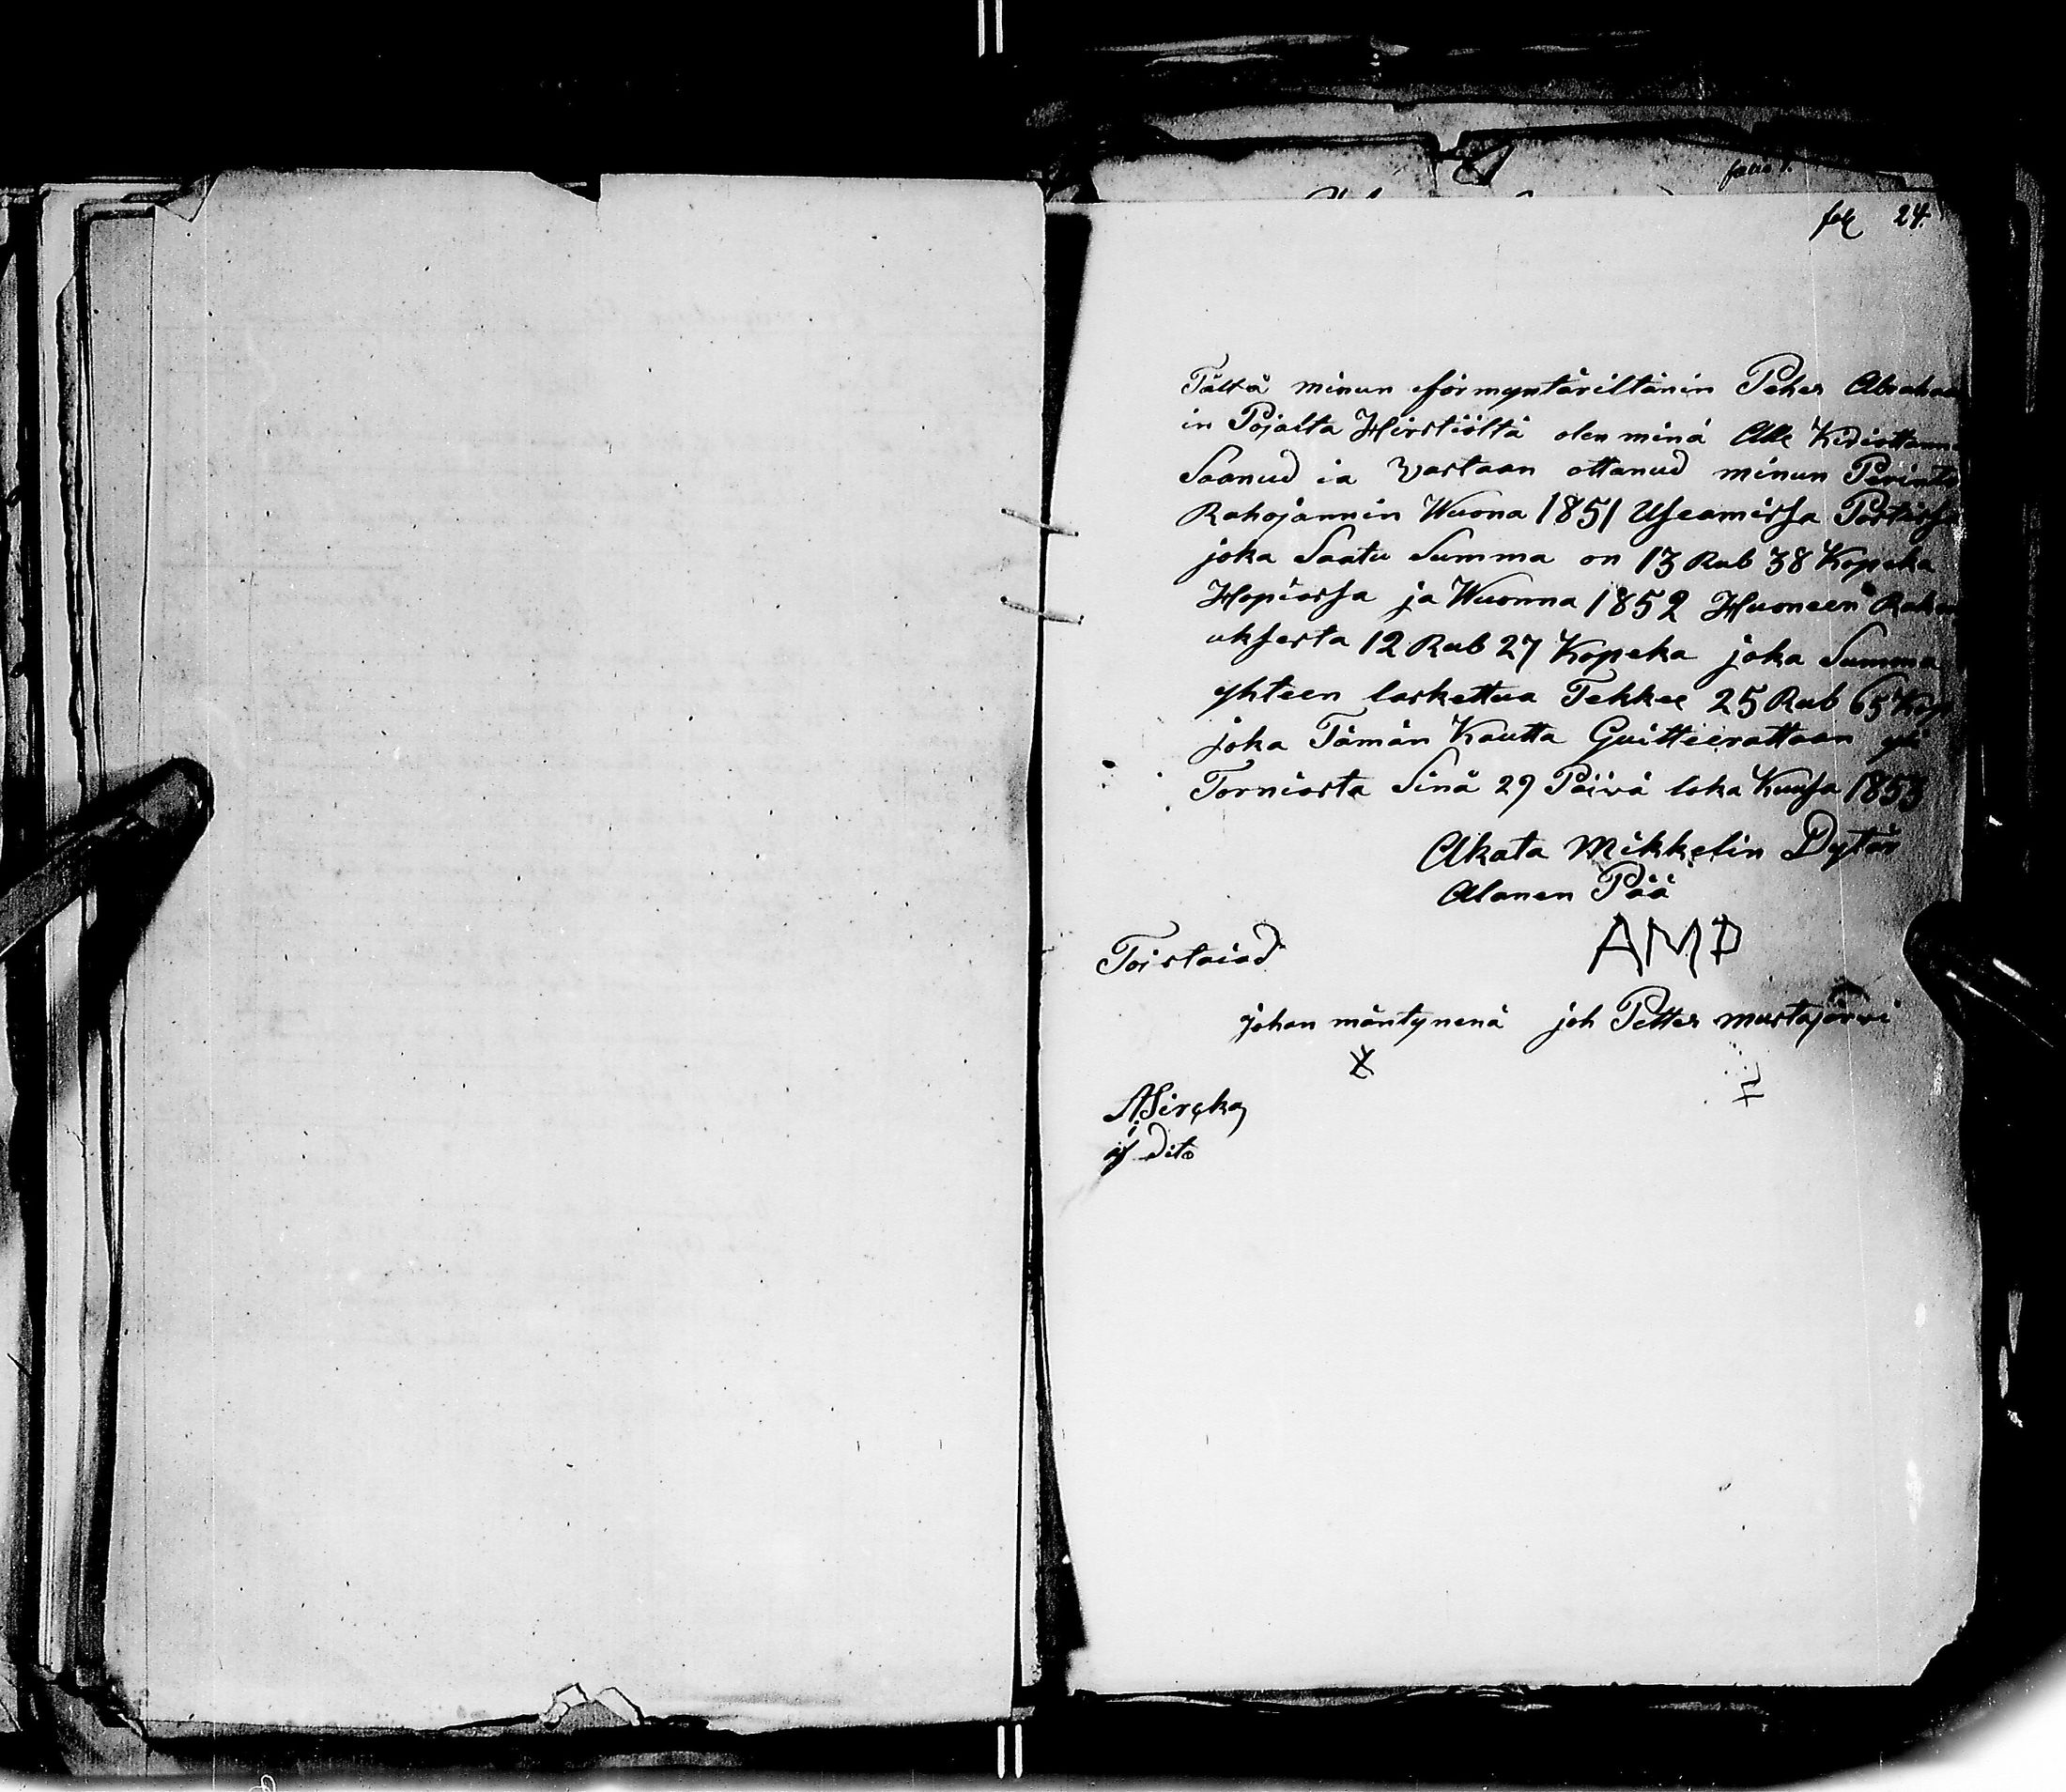 fol 24.
Tältä minun förmyntäriltänin Peher Abraha
in Pojalta Hirstiöltä olen minä Alle Kirioittann
Saanud ia Vastaan ottanud minun Perintö
Rahojannin Wuona 1851 Useamissa Postissa
joka Saatu Summa on 13 Rub 38 Kopeka
Hopiassa ja Wuonna 1852 Huoneen Rakan
uksesta 12 Rub 27 Kopeka joka Summa
yhteen laskettua Tekkee 25 Rub 65 Kop
joka Tämän Kautta Quitteerattaan
Torniosta Sinä 29 Päivä loka Kuusa 1853
Akata Mikkelin Dytär
Alanen Pää
Toistaiad
AMD
johan mäntynenä joh Petter mustajärwi
dito